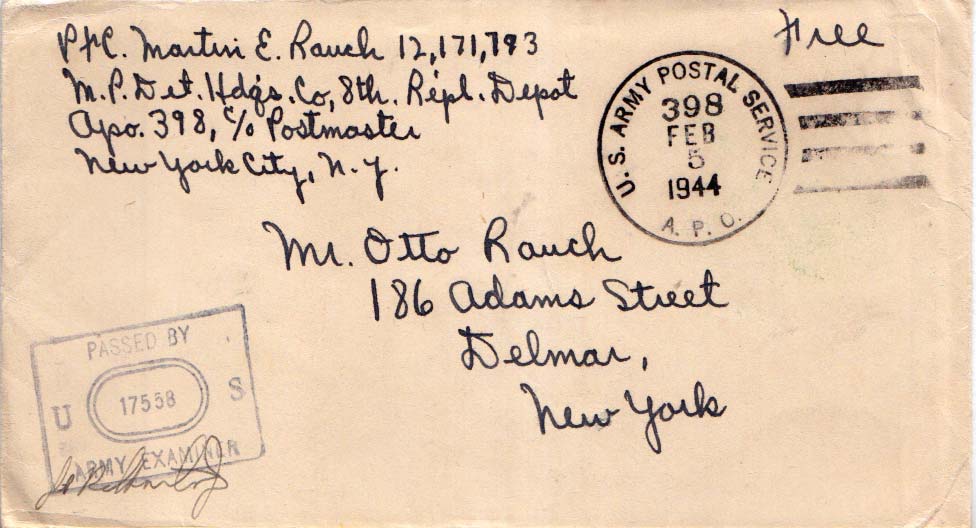 Pfc. Martin E. Rauch 12,171,793
M.P. Det. Hdqs. Co, 8th. Repl. Depot
Apo. 398, c/o Postmaster
New York City, N.Y.
Free
U.S. ARMY POSTAL SERVICE
398
FEB
5
1944
A.P.O.
Mr. Otto Rauch
186 Adams Street
Delmar,
New York
PASSED BY
U 17558 S
ARMY EXAMINER